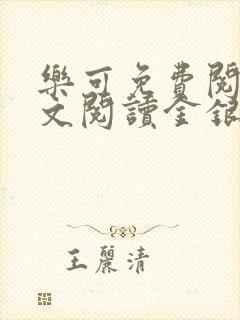 樂可免費閱
文閱讀金銀
王麗清